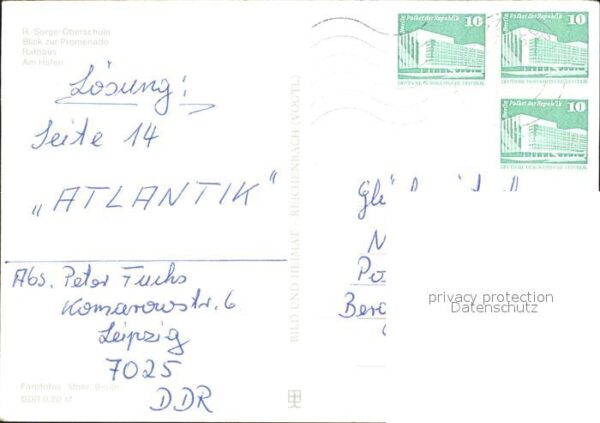 R.-Sorge-Oberschule
Blick zur Promenade
Rathaus
Am Hafen
Lösung:
Seite 14
„ATLANTIK"
Abs. Peter Fuchs
Komarowstr. 6
Leipzig
7025
DDR
Farbfotos: Mohr, Berlin
DDR 0,20 M
BILD UND HEIMAT REICHENBACH (VOGTL)
Berlin Palast der Republik 10
DEUTSCHE DEMOKRATISCHE REPUBLIK
Berlin Palast der Republik 10
DEUTSCHE DEMOKRATISCHE REPUBLIK
Berlin Palast der Republik 10
DEUTSCHE DEMOKRATISCHE REPUBLIK
privacy protection
Datenschutz